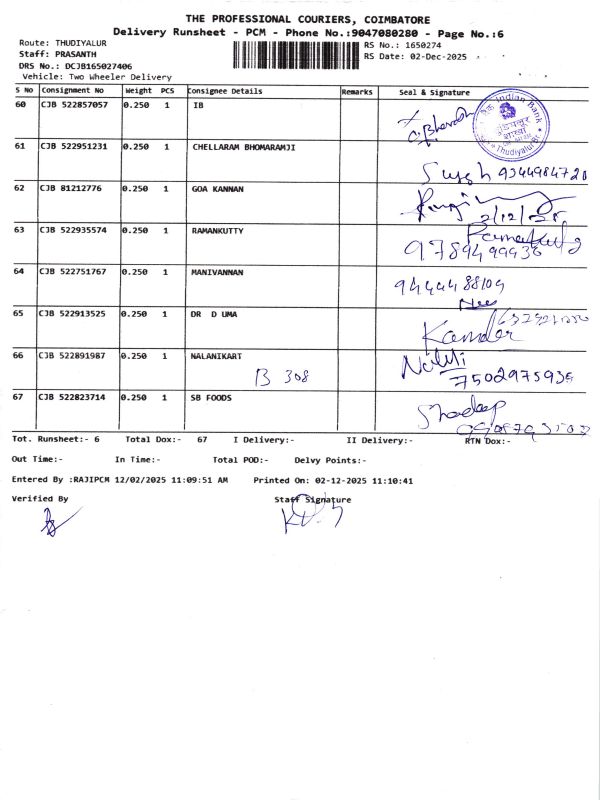 THE PROFESSIONAL COURIERS, COIMBATORE
Delivery Runsheet - PCM - Phone No.:9047080280 - Page No.:6
Route: THUDIYALUR
Staff: PRASANTH
DRS No.: DCJB165027406
Vehicle: Two Wheeler Delivery
RS No.: 1650274
RS Date: 02-Dec-2025
S No Consignment No Weight PCS Consignee Details Remarks Seal & Signature
60 CJB 522857057 0.250 1 IB
Indian Bank
Thudiyalur Br
61 CJB 522951231 0.250 1 CHELLARAM BHOMARAMJI
9344984720
62 CJB 81212776 0.250 1 GOA KANNAN
2/12/25
63 CJB 522935574 0.250 1 RAMANKUTTY
9789499936
64 CJB 522751767 0.250 1 MANIVANNAN
65 CJB 522913525 0.250 1 DR D UMA
66 CJB 522891987 0.250 1 NALANIKART
B 308
7502975936
67 CJB 522823714 0.250 1 SB FOODS
Tot. Runsheet:- 6 Total Dox:- 67 I Delivery:- II Delivery:- RTN Dox:-
Out Time:- In Time:- Total POD:- Delvy Points:-
Entered By :RAJIPCM 12/02/2025 11:09:51 AM Printed On: 02-12-2025 11:10:41
Verified By Staff Signature